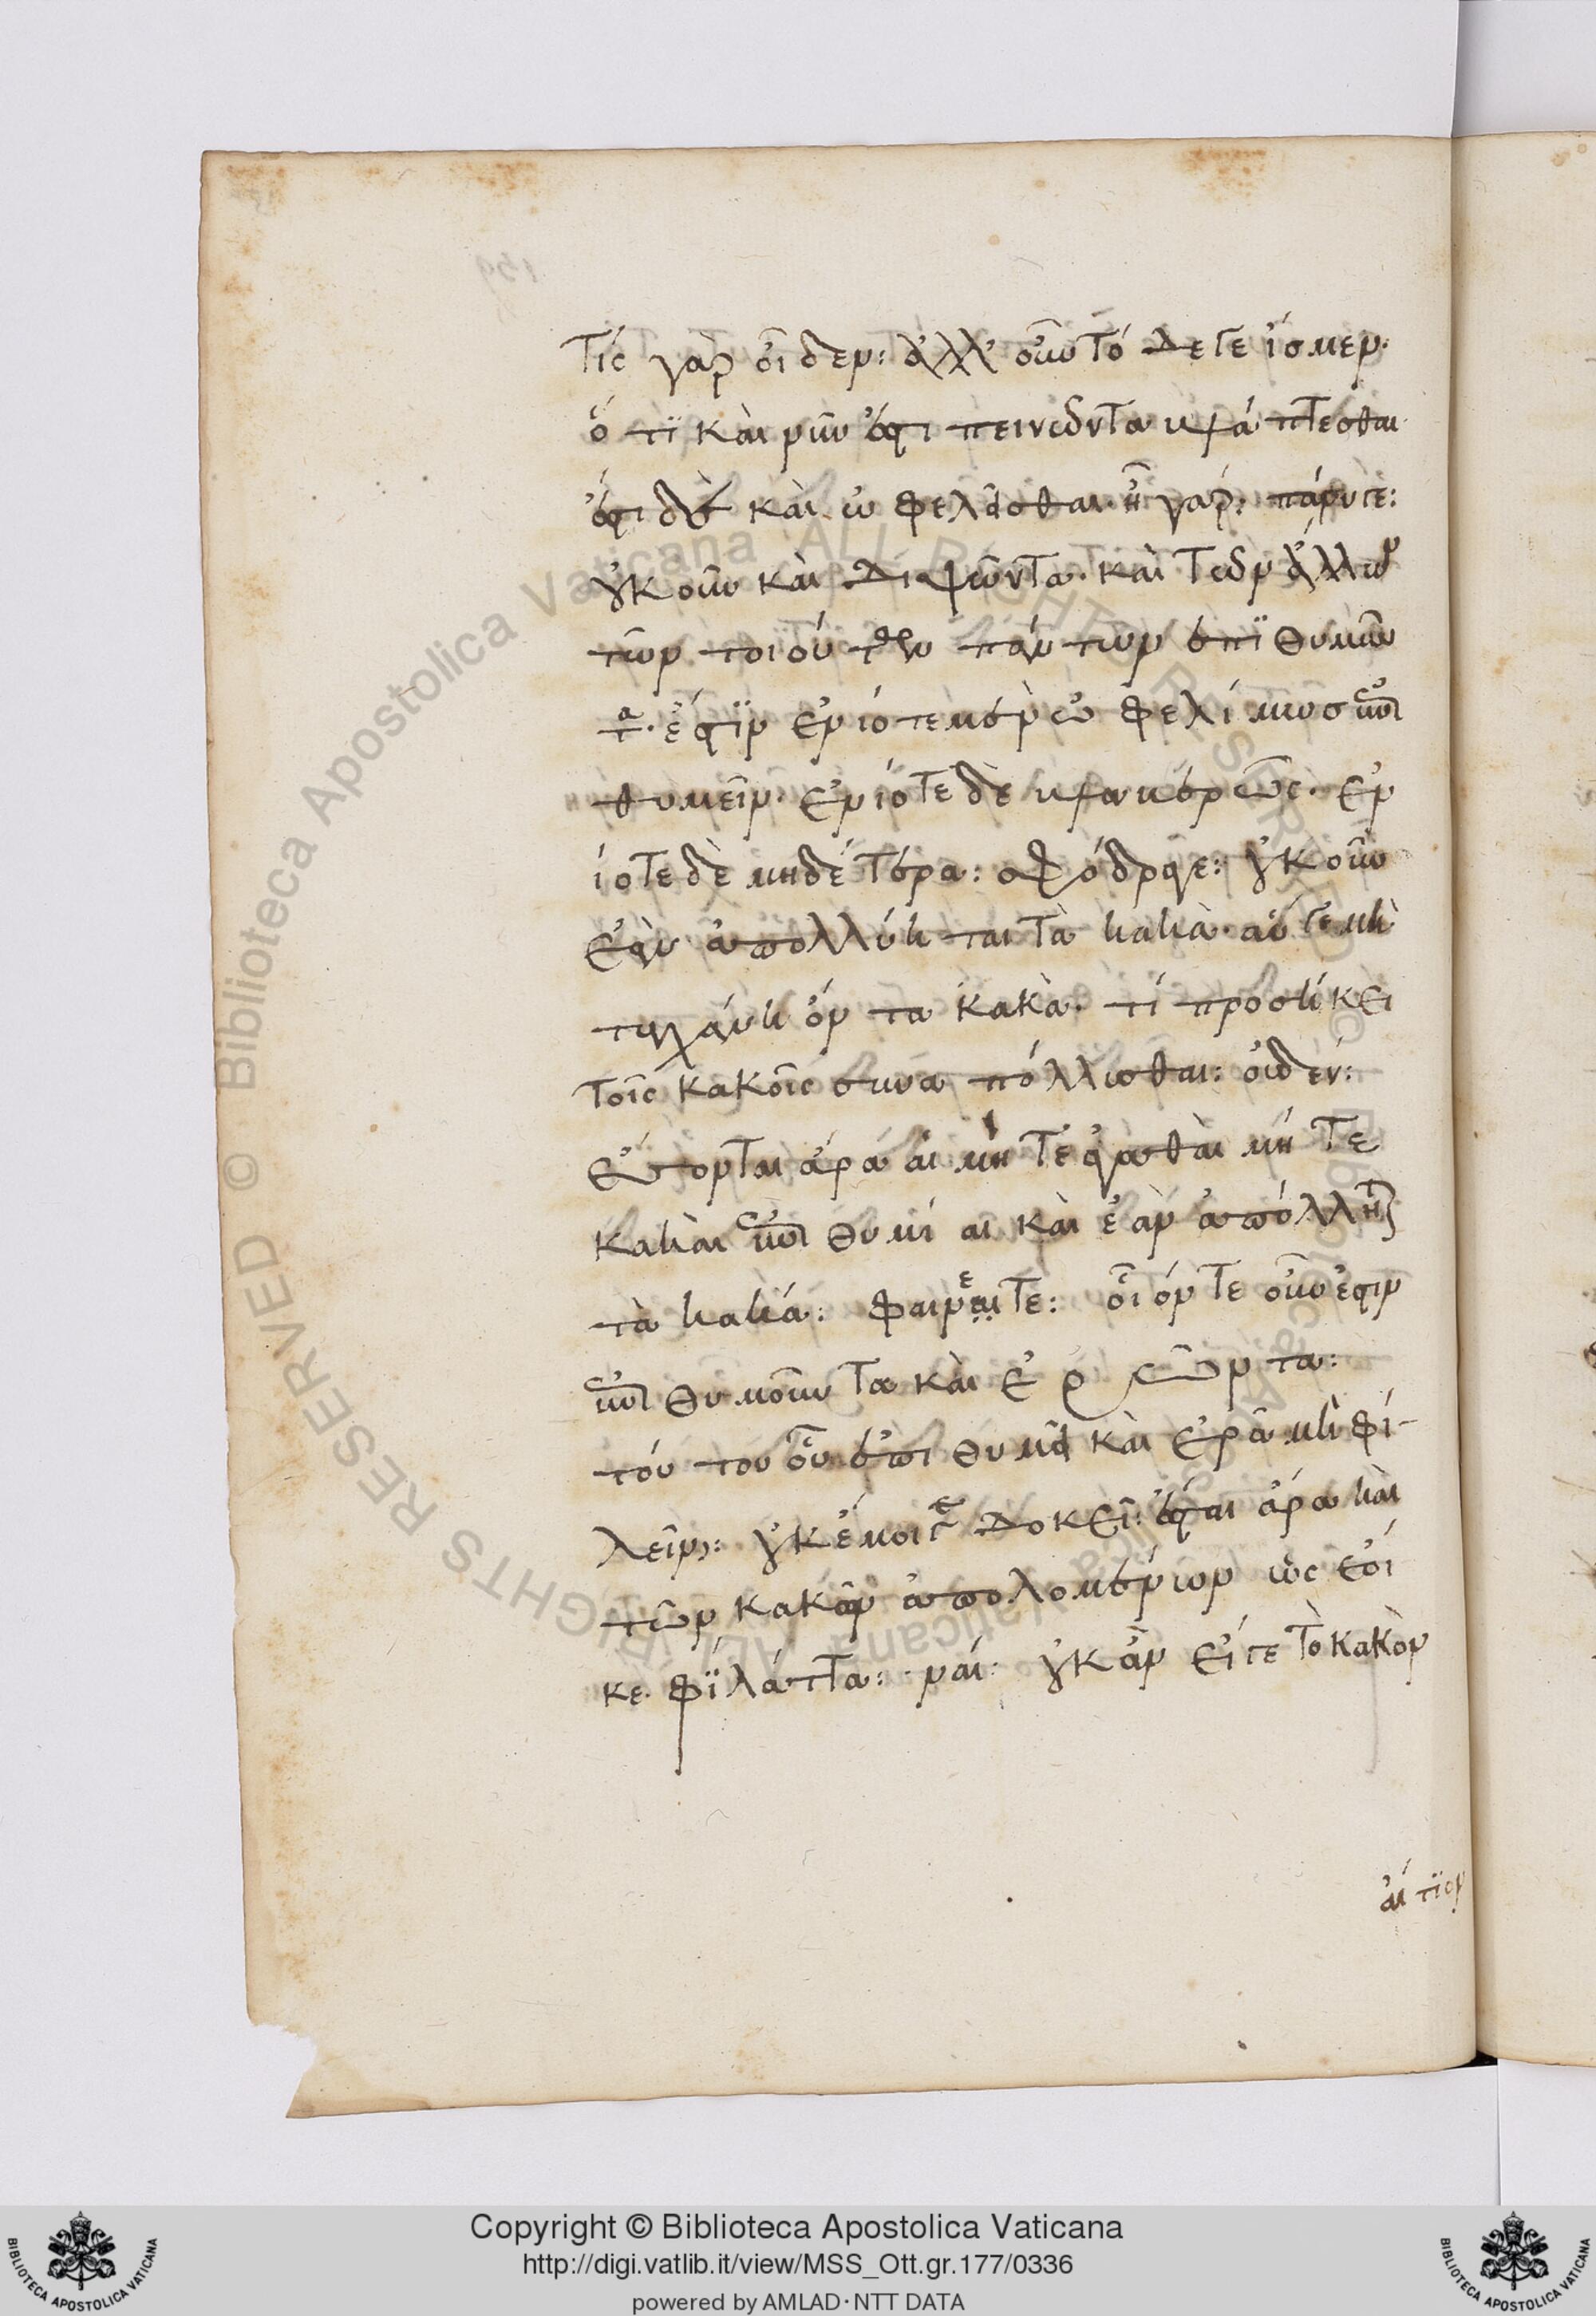 τίς γὰρ οἶδεν: ἀλλ' οὖν τόδε γε ἴσμεν·
ὅτι καὶ νῦν ἔστι πεινῶντα βλάπτεσθαι·
ἔστι δὲ καὶ ὠφελεῖσθαι· ἦ γάρ: πάνυ γε:
οὐκοῦν καὶ διψῶντα· καὶ τῶν ἄλλων
τῶν τοιούτων πάντων ἐπιθυμοῦν
τα· ἔστιν ἐνίοτε μὲν ὠφελίμως ἐπι
θυμεῖν· ἐνίοτε δὲ βλαβερῶς· ἐν
ίοτε δὲ μηδέτερα: σφόδρα γε: οὐκοῦν
ἐὰν ἀπολλύηται τὰ κακὰ· ἅ γε μὴ
τυγχάνῃ ὄντα κακὰ· τί προσήκει
τοῖς κακοῖς συναπόλλυσθαι: οὐδέν:
ἔσονται ἄρα αἱ μήτε ἀγαθαὶ μήτε
κακαὶ ἐπιθυμίαι καὶ ἐὰν ἀπόληται
τὰ κακά: φαίνεται: οἷόν τε οὖν ἐστιν
ἐπιθυμοῦντα καὶ ἐρῶντα:
τούτου οὗ ἐπιθυμεῖ καὶ ἐρᾶ μὴ φι-
λεῖν: οὐκ ἔμοιγε δοκεῖ: ἔσται ἄρα καὶ
τῶν κακῶν ἀπολομένων ὡς ἔοι
κε· φίλ' ἄττα: ναί: οὐκ ἂν εἴ γε τὸ κακὸν
αἴτιον
Copyright © Biblioteca Apostolica Vaticana
http://digi.vatlib.it/view/MSS_Ott.gr.177/0336
powered by AMLAD·NTT DATA